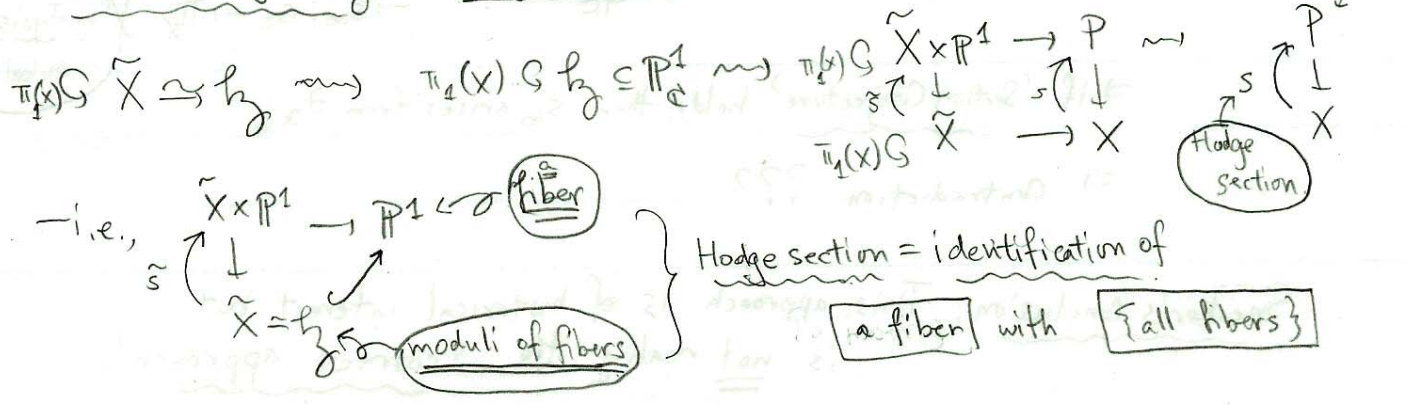 π₁(X) ↻ X̃ ≅ 𝔥 ⇝ π₁(X) ↻ 𝔥 ⊆ ℙ¹_ℂ ⇝ π₁(X) ↻ X̃ × ℙ¹ → P ⇝ P
s̃ ↓ s ↓ s ↓
π₁(X) ↻ X̃ → X X
Hodge section
— i.e., X̃ × ℙ¹ → ℙ¹ a fiber
s̃ ↓
X̃ = 𝔥 moduli of fibers
Hodge section = identification of
a fiber with {all fibers}